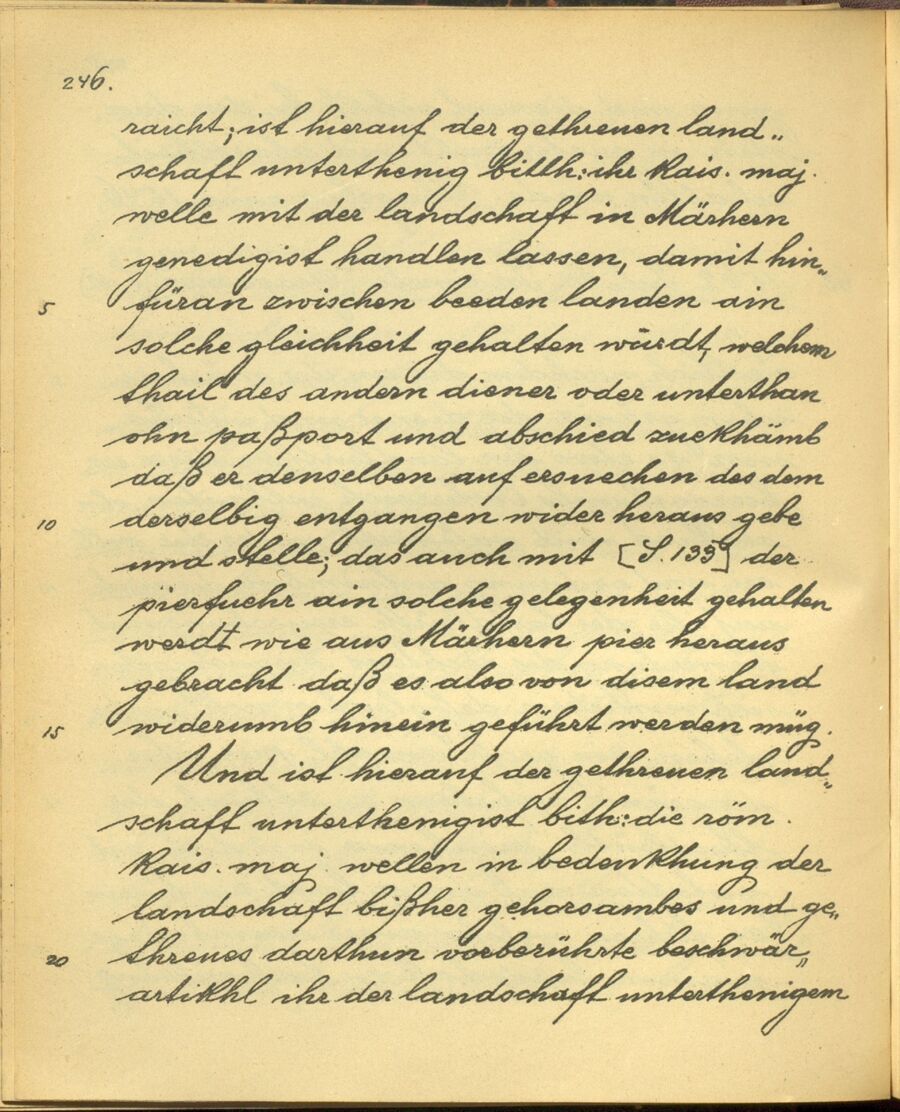 246.
raicht; ist hierauf der gethreuen land„
schaft unterthenig bitth: ihr Kais. maj.
welle mit der landschaft in Märhern
genedigist handlen lassen, damit hin„
5 füran zwischen beeden landen ain
solche gleichheit gehalten würdt, welchem
thail des andern diener oder unterthan
ohn paßport und abschied zuekhämb
daß er denselben auf ersuechen des dem
10 derselbig entgangen wider heraus gebe
und stelle; das auch mit [S. 139] der
pierfuehr ain solche gelegenheit gehalten
werdt wie aus Märhern pier heraus
gebracht daß es also von disem land
15 widerumb hinein geführt werden müg.
Und ist hierauf der gethreuen land„
schaft unterthenigist bith: die röm.
Kais. maj. wellen in bedenkhung der
landschaft bißher gehorsambes und ge„
20 threues darthun vorberührte beschwär„
artikhl ihr der landschaft unterthenigem